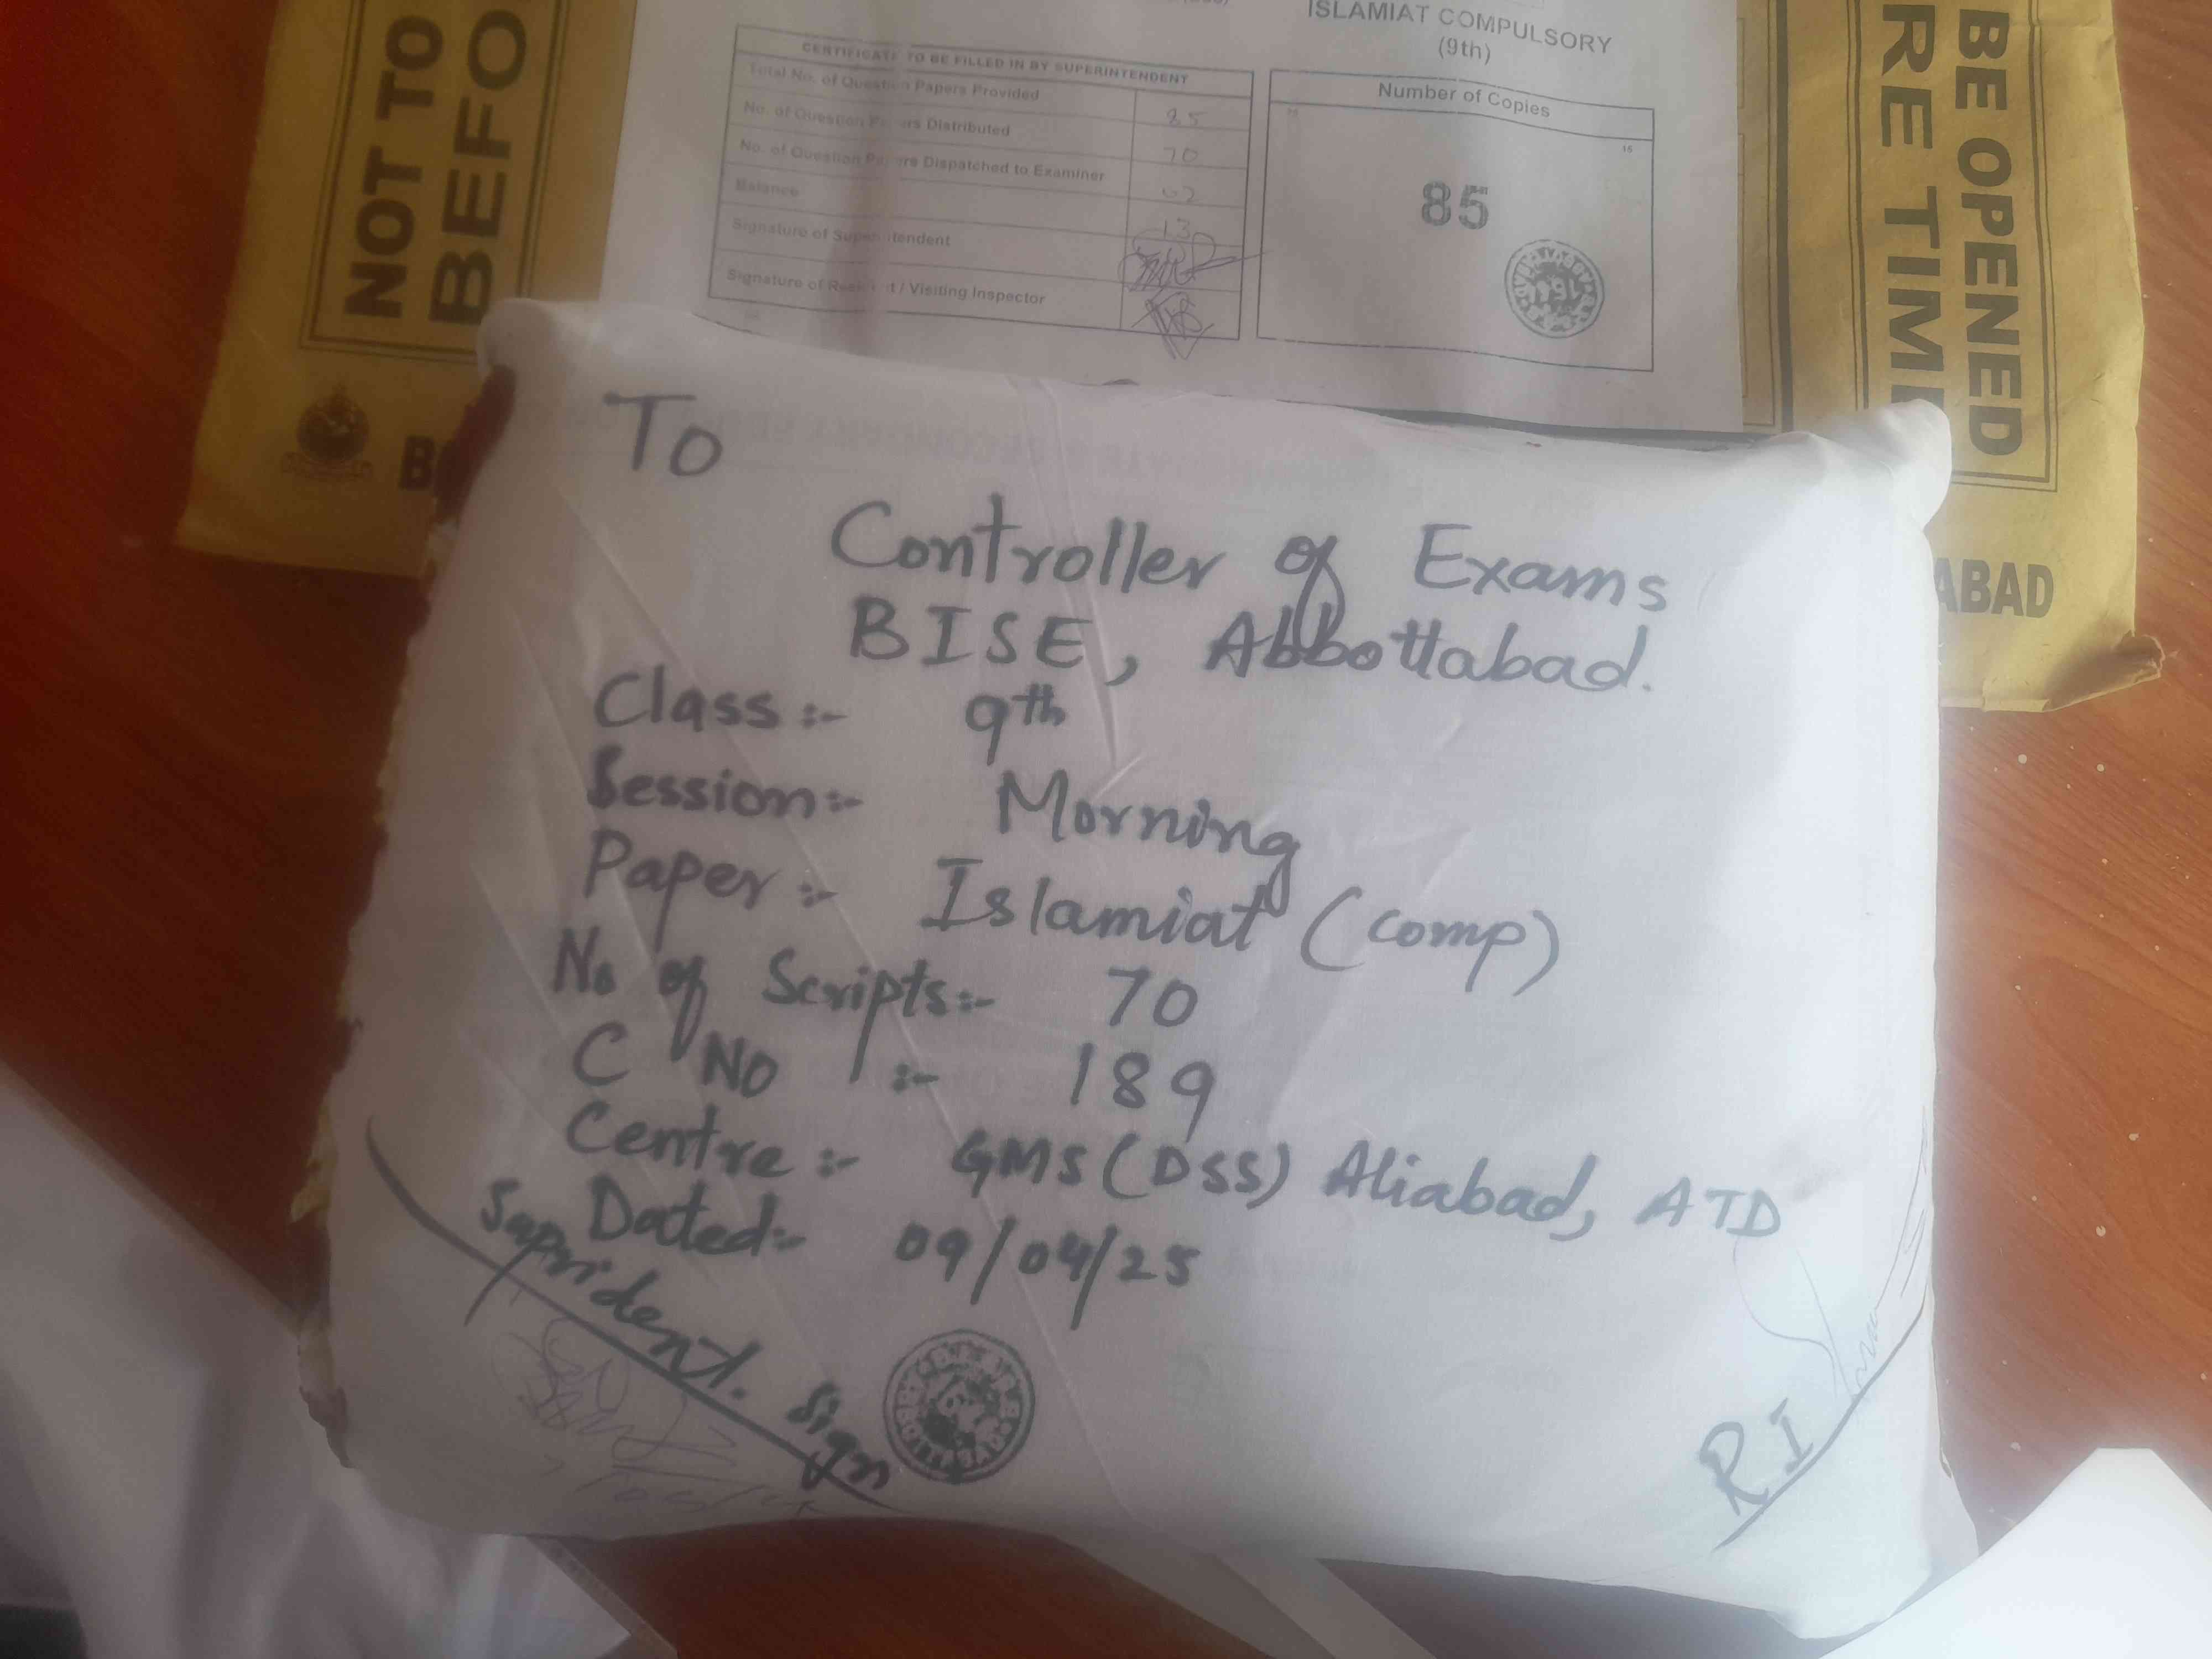 NOT TO
BEFO
ISLAMIAT COMPULSORY
(9th)
CERTIFICATE TO BE FILLED IN BY SUPERINTENDENT
Total No. of Question Papers Provided
85
No. of Question Papers Distributed
70
No. of Question Papers Dispatched to Examiner
02
Balance
13
Signature of Superintendent
Signature of Resident / Visiting Inspector
Number of Copies
85
BE OPENED
RE TIME
ABAD
To
Controller of Exams
BISE, Abbottabad.
Class:- 9th
Session:- Morning
Paper:- Islamiat (comp)
No of Scripts:- 70
C No :- 189
Centre:- GMS (DSS) Aliabad, ATD
Dated:- 09/04/25
Suprident. Sign
RI